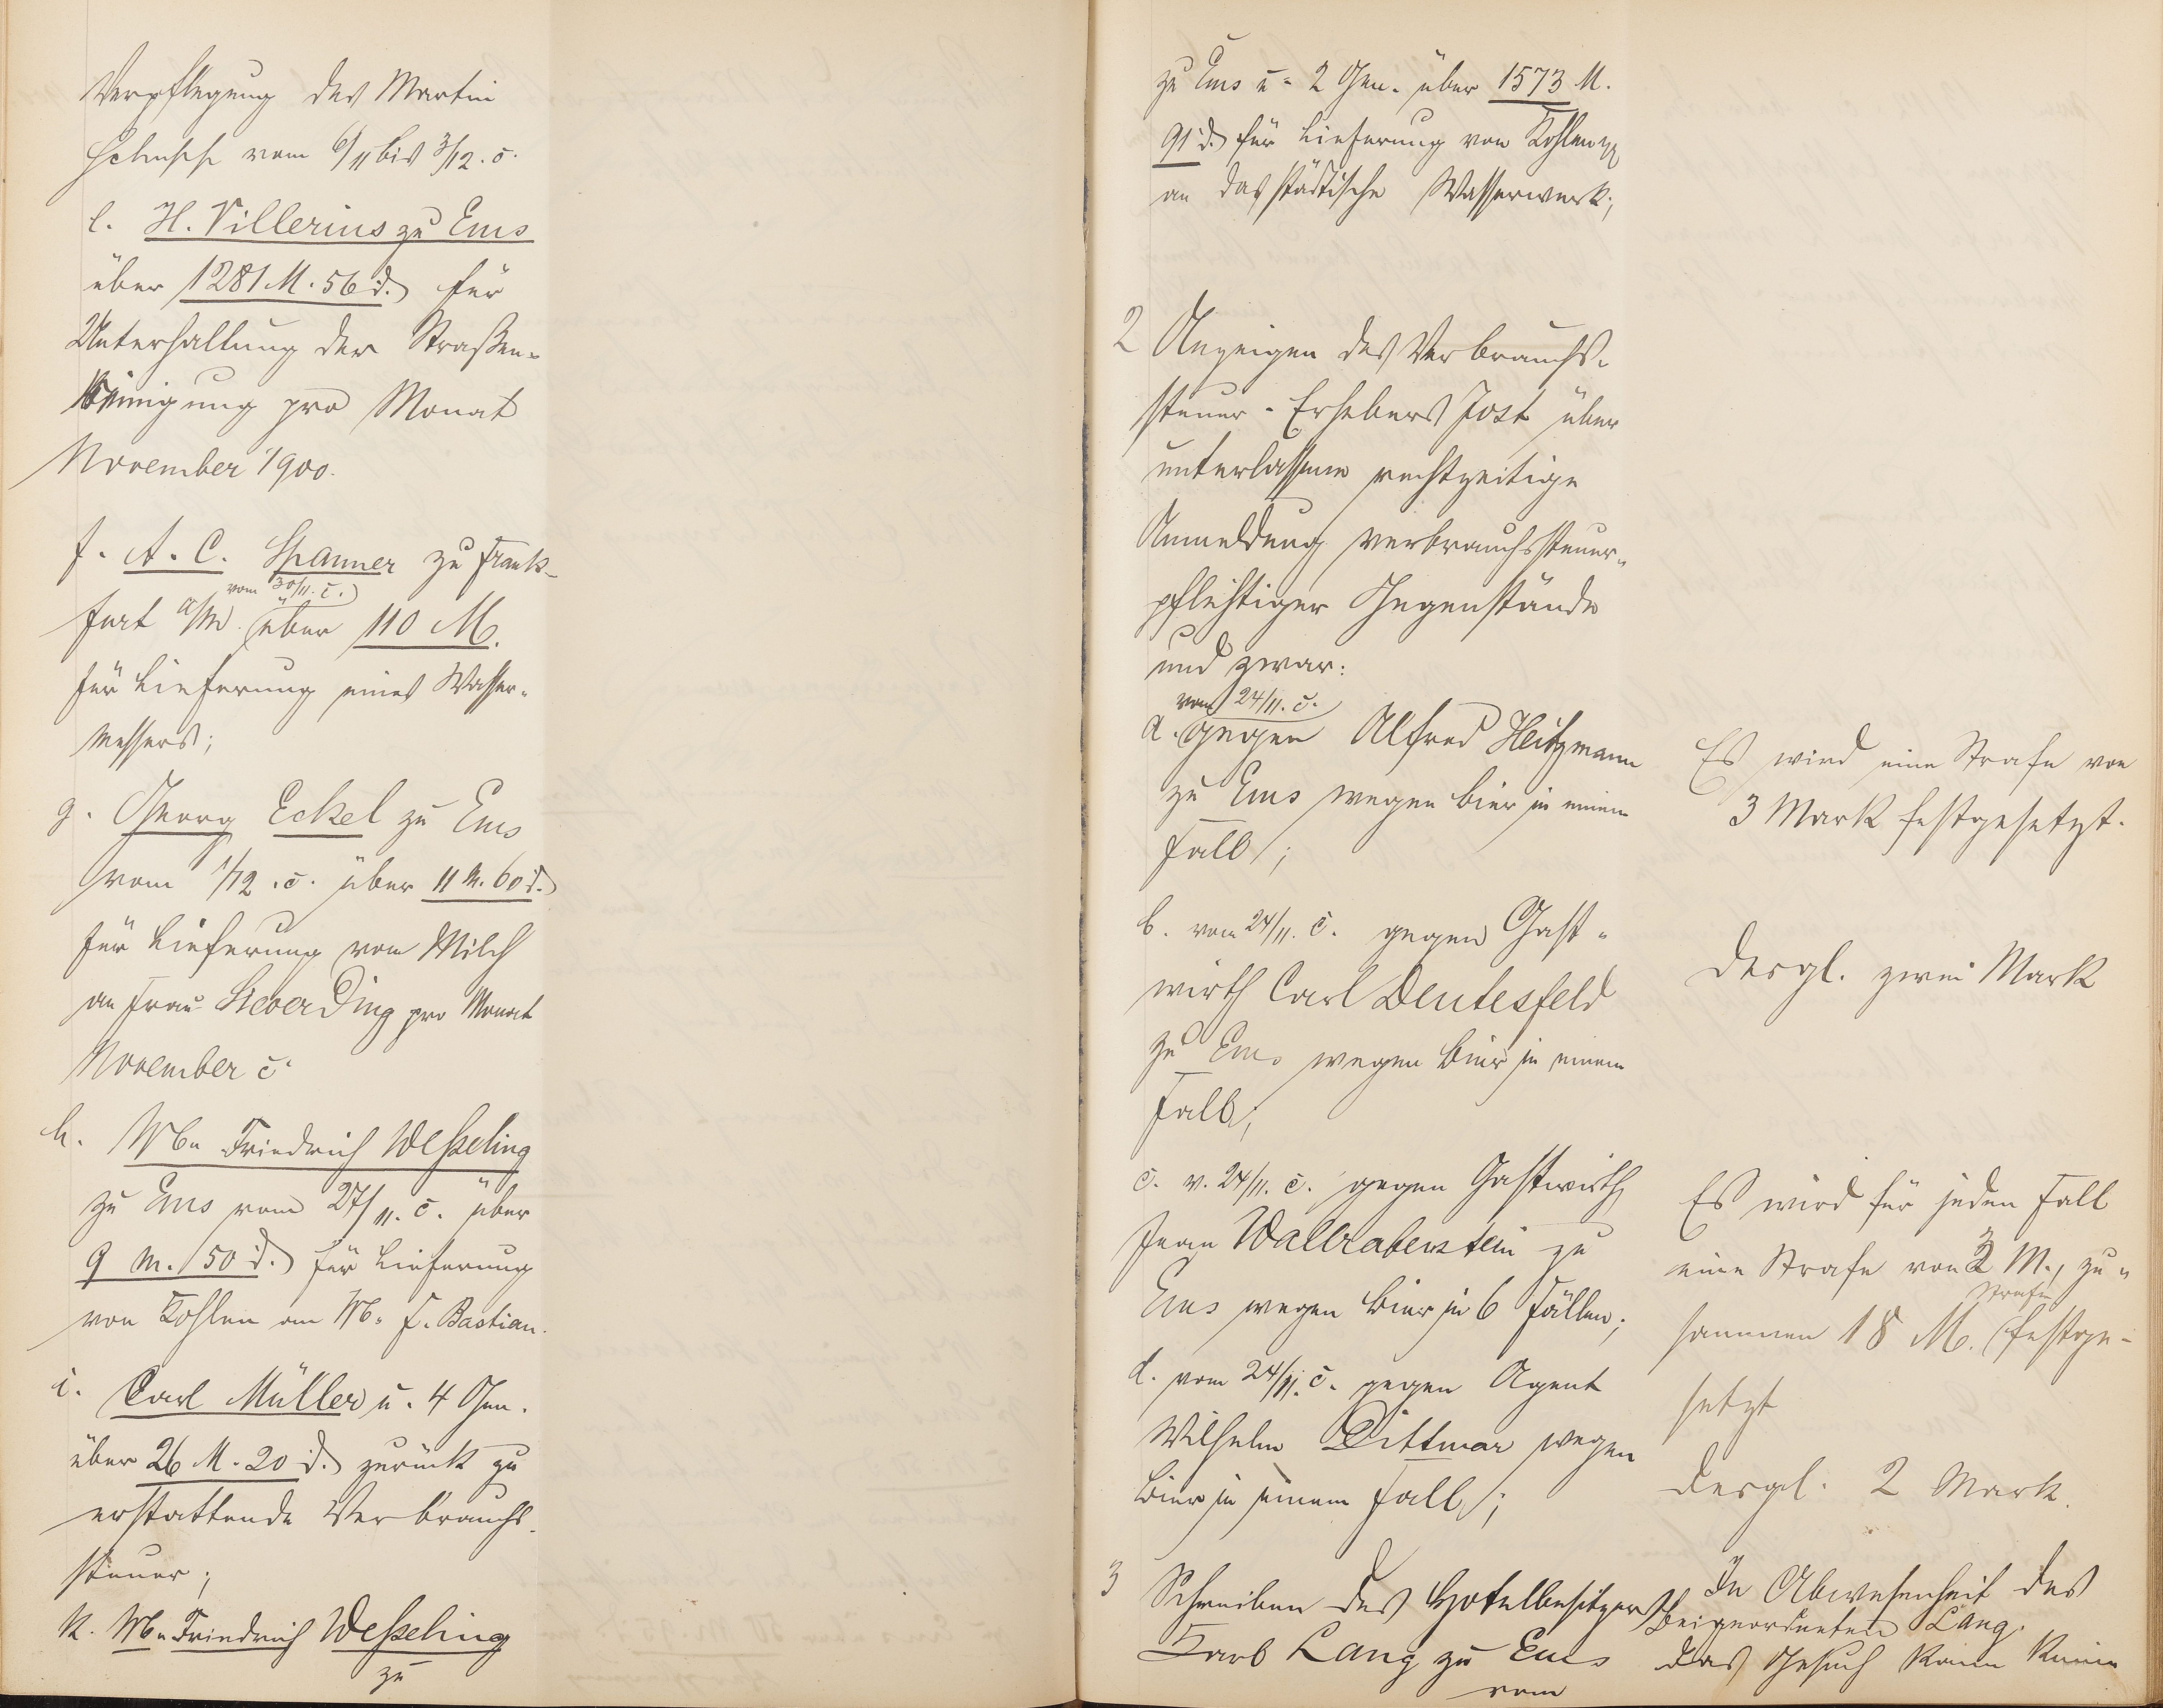 Verpflegung des Martin
vom 6/11 bis 3/12. c.
e. H. Villerius zu Ems
über 1281 M. 56 d. für
Unterhaltung der Straßen-
reinigung pro Monat
November 1900.
f. A. C. Spanner zu Frank-
vom 30/11. c.
furt a/M. über 110 M.
für Lieferung eines Wasser-
messers;
g. Georg Eckel zu Ems
vom 1/12. c. über 11 M. 60 d.
für Lieferung von Milch
an Frau Sieverding pro Monat
November c.
h. Ww. Friedrich Weßeling
zu Ems vom 27/11. c. über
9 M. 50 d. für Lieferung
von Kohlen an Ww. F. Bastian.
i. Carl Müller u. 4 Gen.
über 26 M. 20 d. zurück zu
erstattende Verbrauchs-
steuer;
k. Ww. Friedrich Weßeling
zu
zu Ems u. 2 Gen. über 1573 M.
91 d. für Lieferung von Kohlen
an das städtische Wasserwerk;
2 Anzeigen des Verbrauchs-
steuer-Erhebers Jost über
unterlassene rechtzeitige
Anmeldung verbrauchssteuer-
pflichtiger Gegenstände
und zwar:
vom 24/11. c.
a. gegen Alfred Heitzmann
zu Ems wegen Bier in einem
Fall;
Es wird eine Strafe von
3 Mark festgesetzt.
b. vom 24/11. c. gegen Gast-
wirth Carl Deutesfeld
zu Ems wegen Bier in einem
Fall;
Desgl. zwei Mark
c. v. 24/11. c. gegen Gastwirth
Jean Wallrabenstein zu
Ems wegen Bier in 6 Fällen;
Es wird für jeden Fall
eine Strafe von 3 M., zu-
Strafe
sammen 18 M. festge-
setzt
d. vom 24/11. c. gegen Agent
Wilhelm Dittmar wegen
Bier in einem Fall;
Desgl. 2 Mark.
3 Schreiben des Hotelbesitzers
Karl Lang zu Ems
vom
In Abwesenheit des
Beigeordneten Lang.
Das Gesuch kann keine